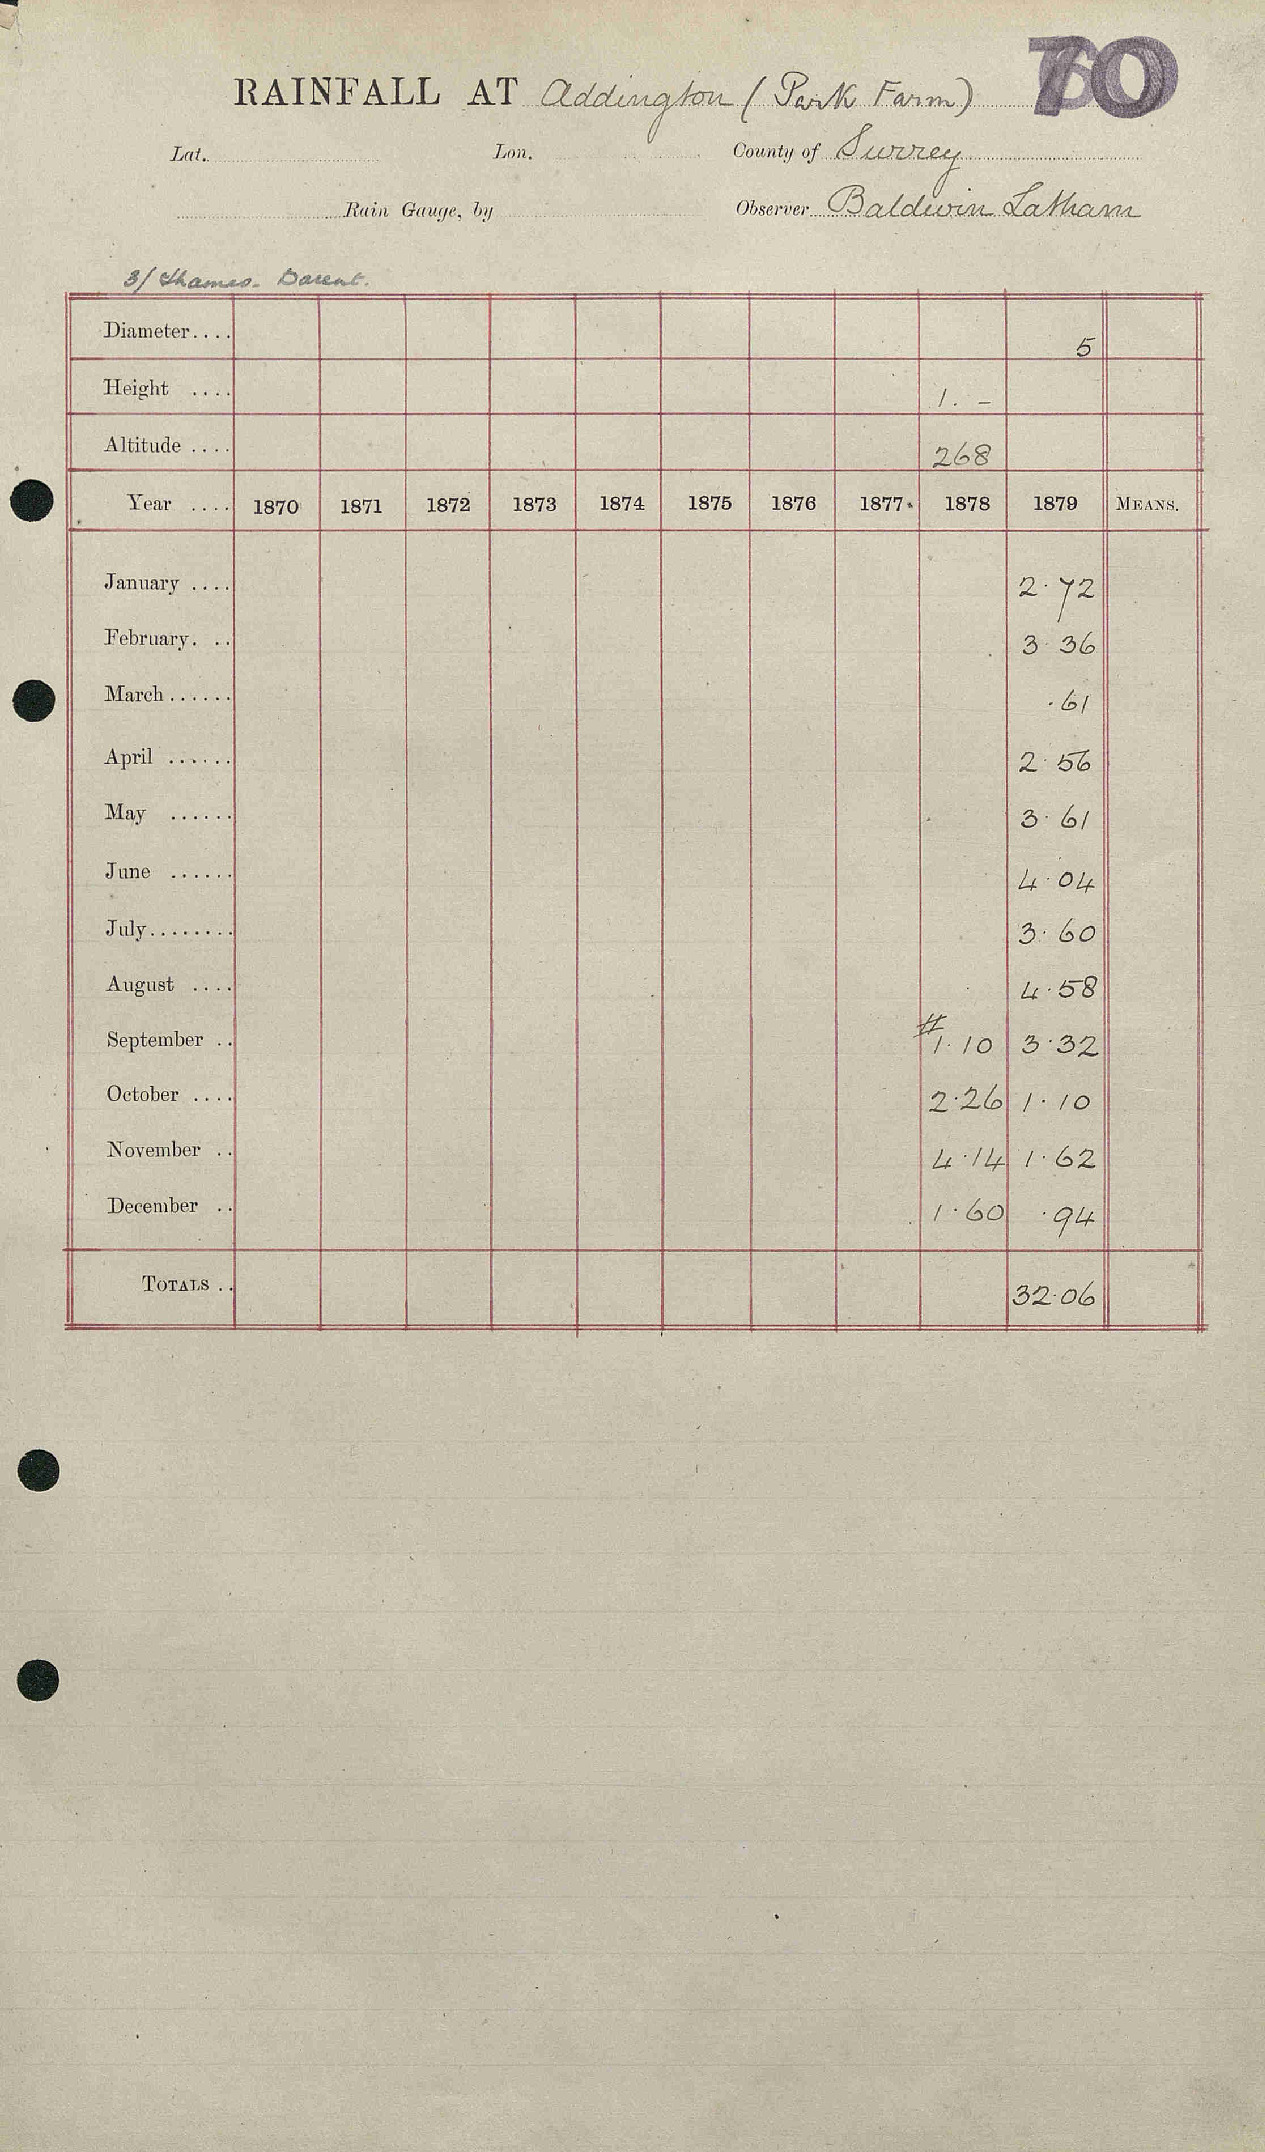 70
RAINFALL AT Addington (Park Farm)
Lat. Lon. County of Surrey
Rain Gauge, by Observer Baldwin Latham
3/ Thames. Darent.
Diameter.... 5
Height .... 1. –
Altitude .... 268
Year .... 1870 1871 1872 1873 1874 1875 1876 1877 1878 1879 MEANS.
January .... 2.72
February. .. 3 36
March...... .61
April ...... 2.56
May ...... 3.61
June ...... 4.04
July........ 3.60
August .... 4.58
September .. # 1.10 3.32
October .... 2.26 1.10
November .. 4.14 1.62
December .. 1.60 .94
TOTALS .. 32.06